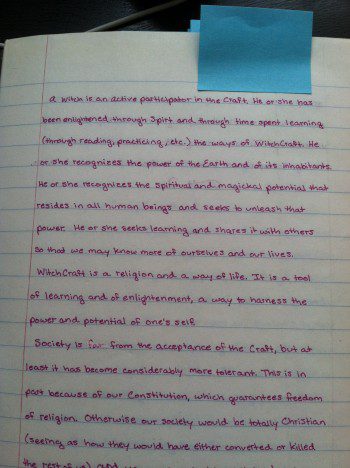 A witch is an active participator in the Craft. He or she has
been enlightened through Spirt and through time spent learning
(through reading, practicing, etc.) the ways of WitchCraft. He
or she recognizes the power of the Earth and of its inhabitants.
He or she recognizes the spiritual and magickal potential that
resides in all human beings and seeks to unleash that
power. He or she seeks learning and shares it with others
so that we may know more of ourselves and our lives.
WitchCraft is a religion and a way of life. It is a tool
of learning and of enlightenment, a way to harness the
power and potential of one's self.
Society is far from the acceptance of the Craft, but at
least it has become considerably more tolerant. This is in
part because of our Constitution, which guarantees freedom
of religion. Otherwise our society would be totally Christian
(seeing as how they would have either converted or killed
the rest of us) and